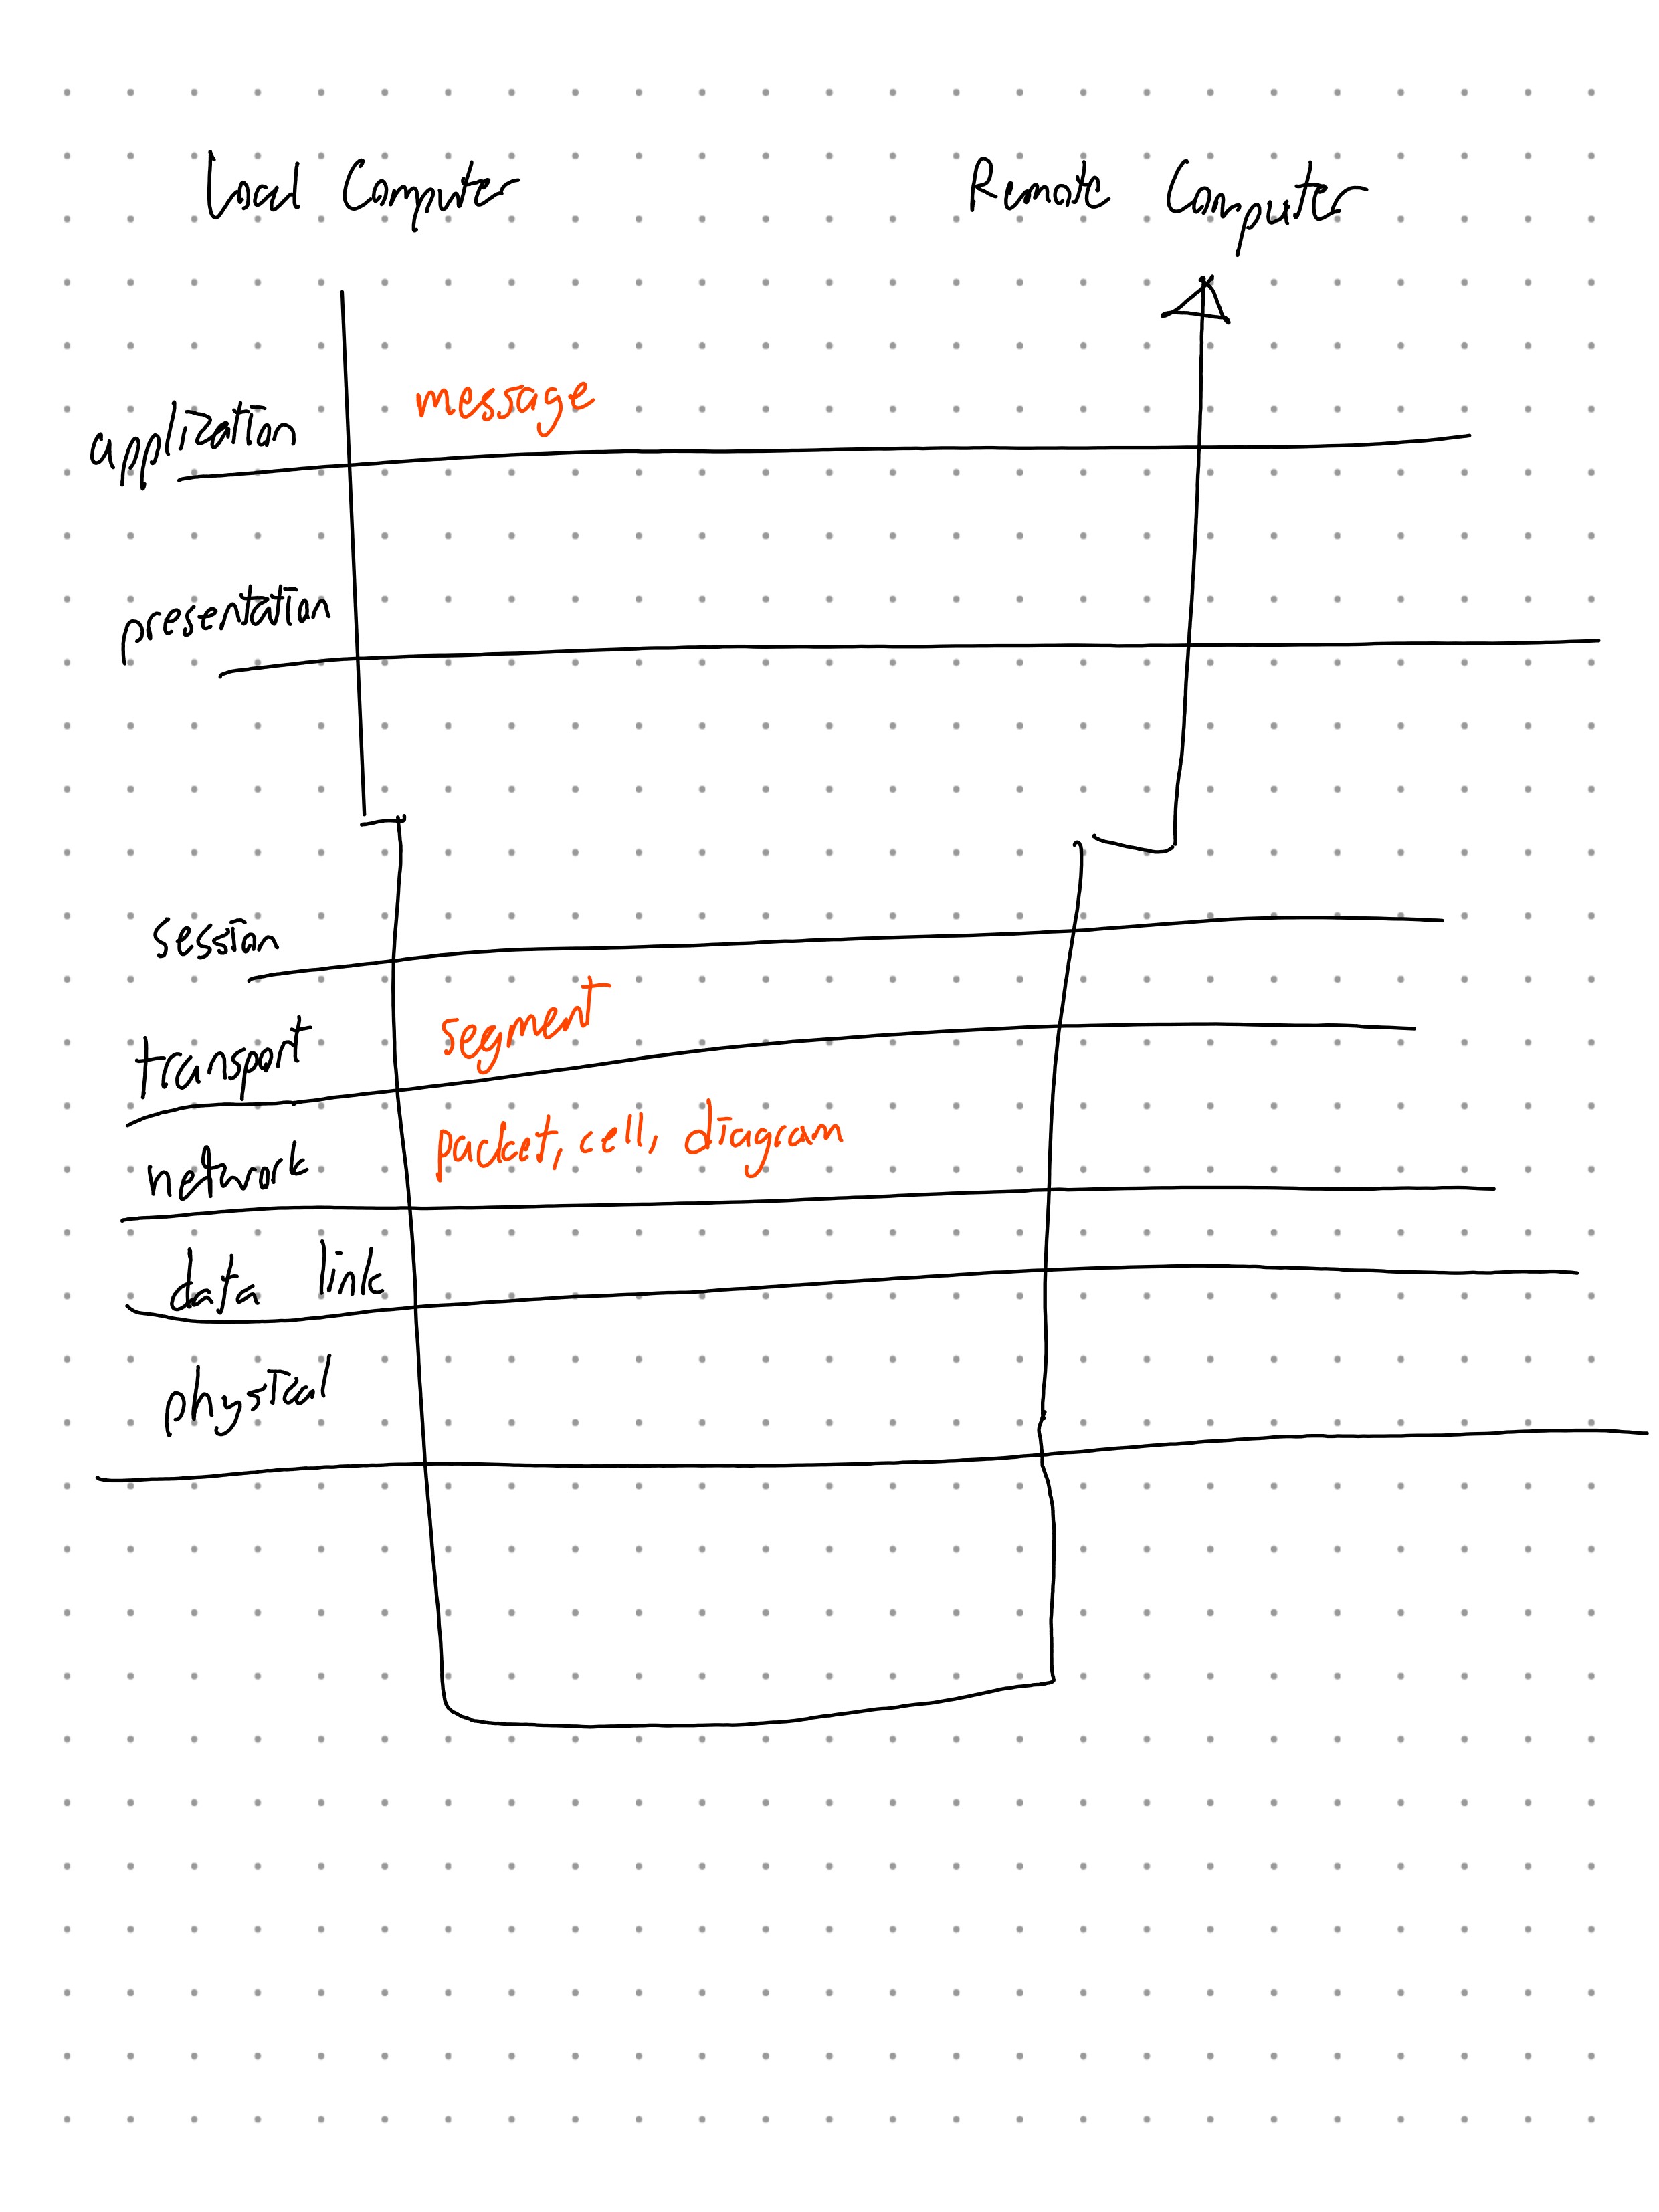 Local Computer
Remote Computer
application
message
presentation
session
transport
segment
network
packet, cell, diagram
data link
physical